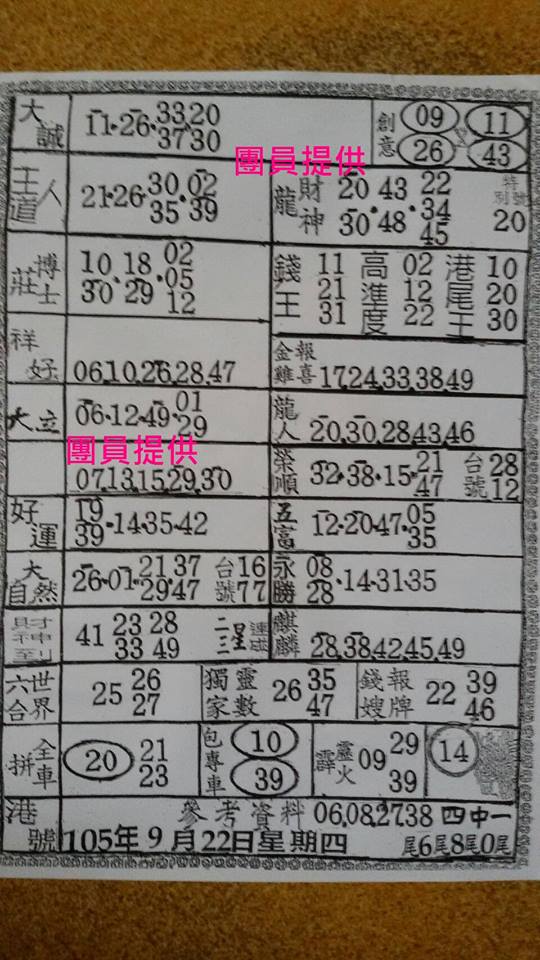 大誠 11·26·33 20
37 30
創意 09 11
26 43
團員提供
王人道 21·26·30·02
35 39
龍財神 20·43·22
30 48 34
45
特別號 20
博士莊 10·18·02
30 29 05
12
錢王 11 高準度 02 港尾王 10
21 12 20
31 22 30
祥好 06,10,26,28,47
金雞報喜 17,24,33,38,49
大立 06·12·49·01
29
龍人 20,30,28,43,46
團員提供
07,13,15,29,30
榮順 32·38·15·21
47
台號 28
12
好運 19·14·35·42
39
五富 12·20·47·05
35
大自然 26·01·21 37
29 47
台號 16
77
永勝 08·14·31·35
28
財神到 41 23 28
33 49
二三星連
麒麟 28,38,42,45,49
六合世界 25 26
27
獨家靈數 26 35
47
錢嫂報牌 22 39
46
全車拼 20 21
23
包專車 10
39
霹靂火 09 29
39
14
港號 參考資料 06,08,27,38 四中一
105年9月22日星期四 尾6尾8尾0尾